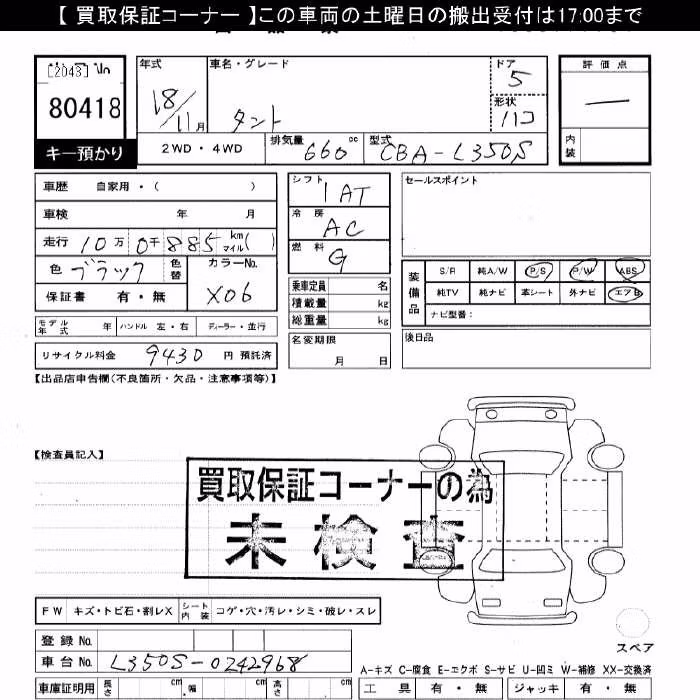 【 買取保証コーナー 】この車両の土曜日の搬出受付は17:00まで
80418
キー預かり
年式
18/11月
車名・グレード
タント
ドア
5
形状
ハコ
2WD・4WD
排気量
660 cc
型式
CBA-L350S
評価点
―
内装
車歴 自家用・( )
車検 年 月
走行 10万 0千 885 km マイル( )
色 ブラック 色替
カラーNo.
X06
保証書 有・無
モデル年式 年 ハンドル 左・右 ディーラー・並行
リサイクル料金 9430 円 預託済
シフト
IAT
冷房
AC
燃料
G
乗車定員 名
積載量 kg
総重量 kg
名変期限
月 日
セールスポイント
装備品
S/R 純A/W P/S P/W ABS
純TV 純ナビ 革シート 外ナビ エアB
ナビ型番:
後日品
【出品店申告欄(不良箇所・欠品・注意事項等)】
【検査員記入】
買取保証コーナーの為
未検査
FW キズ・トビ石・割レX シート内装 コゲ・穴・汚レ・シミ・破レ・スレ
登録 No.
車台 No. L350S-0242968
車庫証明用 長さ cm 幅 cm 高さ cm
スペア
A-キズ C-腐食 E-エクボ S-サビ U-凹ミ W-補修 XX-交換済
工具 有・無 ジャッキ 有・無